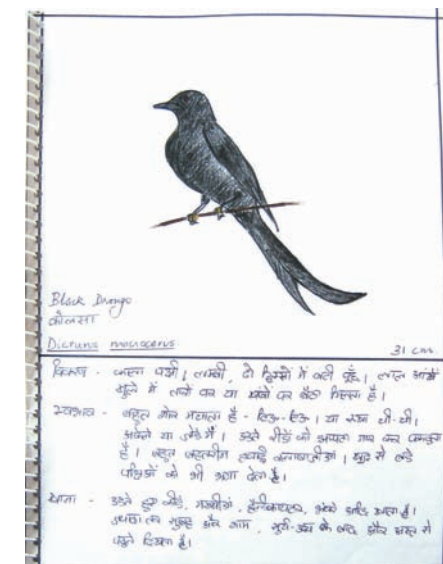 Black Drongo
कोलसा
Dicrurus macrocerus
31 cm.
विवरण - काला पक्षी। लम्बी, दो हिस्सों में बंटी पूँछ। लाल आंखें
खुले में तारों पर या खंबों पर बैठा मिलता है।
स्वभाव - बहुत शोर मचाता है - टिऊ-टिऊ। या सख्त ची-ची।
अकेले या जोड़े में। उड़ते कीड़ों को झपटा मार कर पकड़ता
है। बहुत हवाई कलाबाज़ीयां। खुद से बड़े
पक्षिओं को भी भगा देता है।
खाना - उड़ते हुए कीड़े, मक्खीयां, आदि खाता है।
सुबह और शाम, के बाद और से
पहले दिखता है।